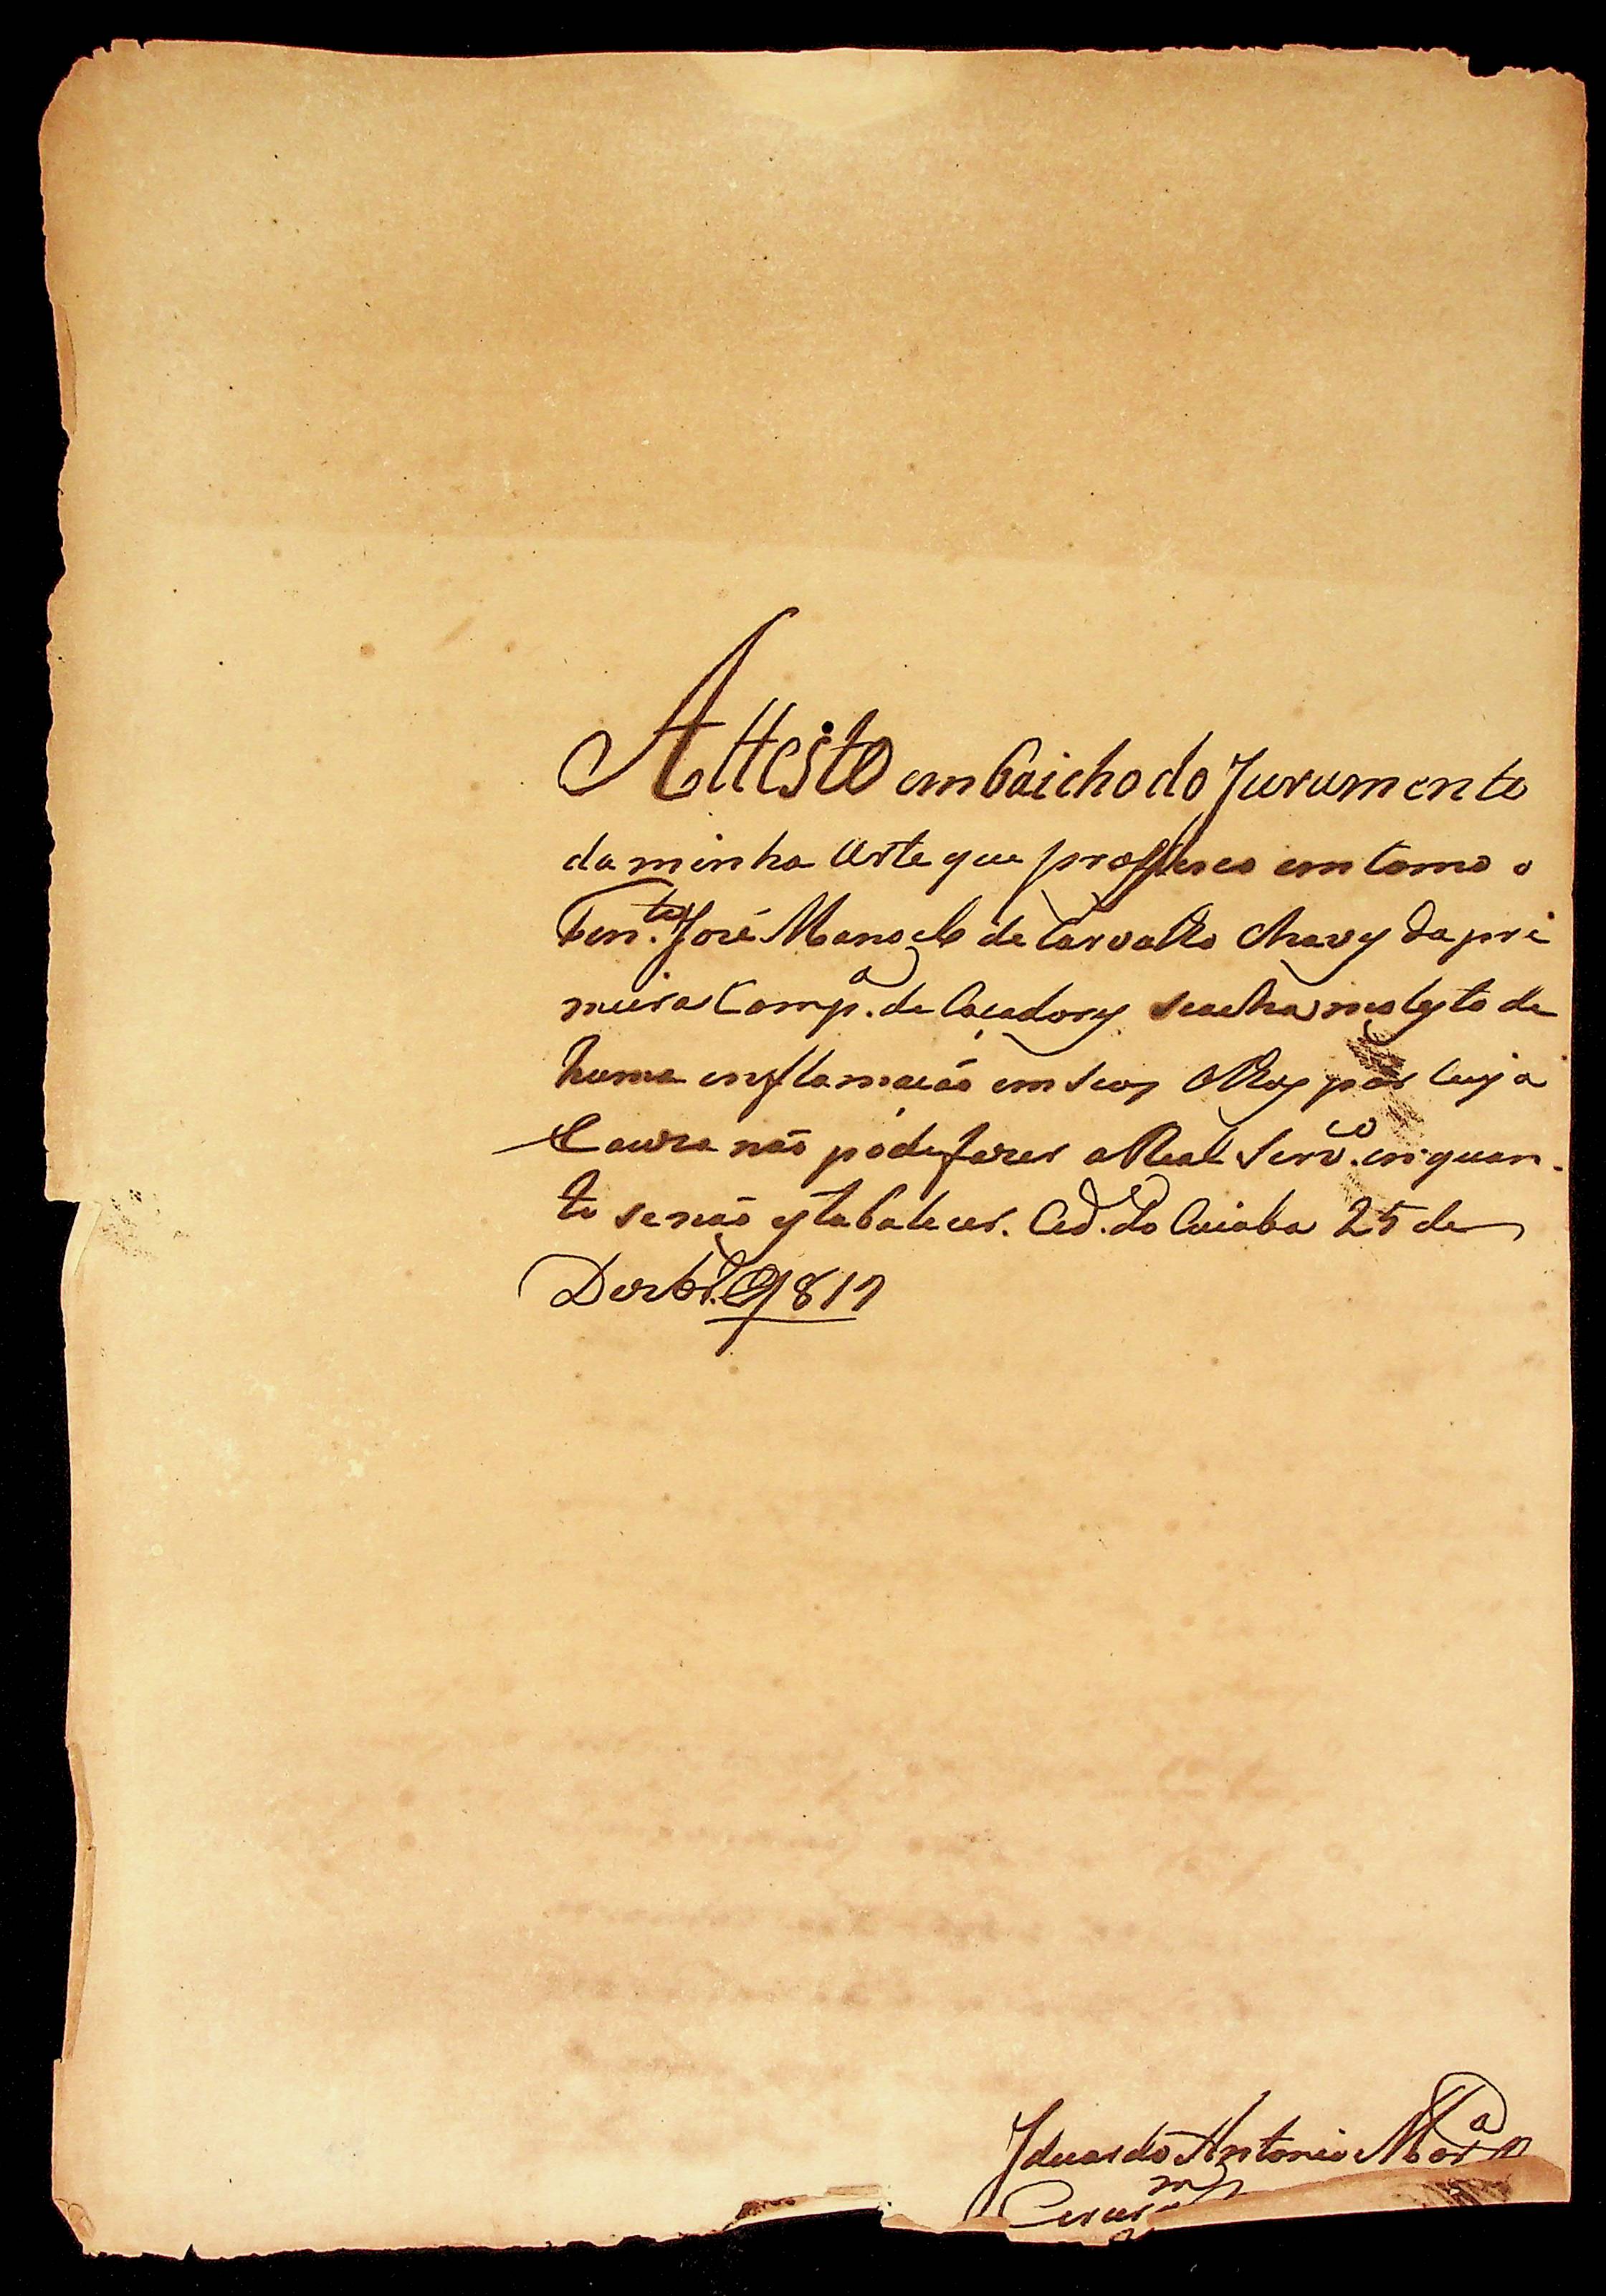 Attesto embaicho do Juramento
da minha Arte que proffeço em como o
Ten.te José Manoel de Carvalho Chaves da pri
meira Comp.a de Caçadores se acha molesto de
huma enflamação em seos olhos por cuja
Cauza não póde fazer o Real Serv.ço enquan-
to se não estabalecer. Cid.e do Cuiaba 25 de
Dezbr.o 1817
Iduardo Antonio
Cirur